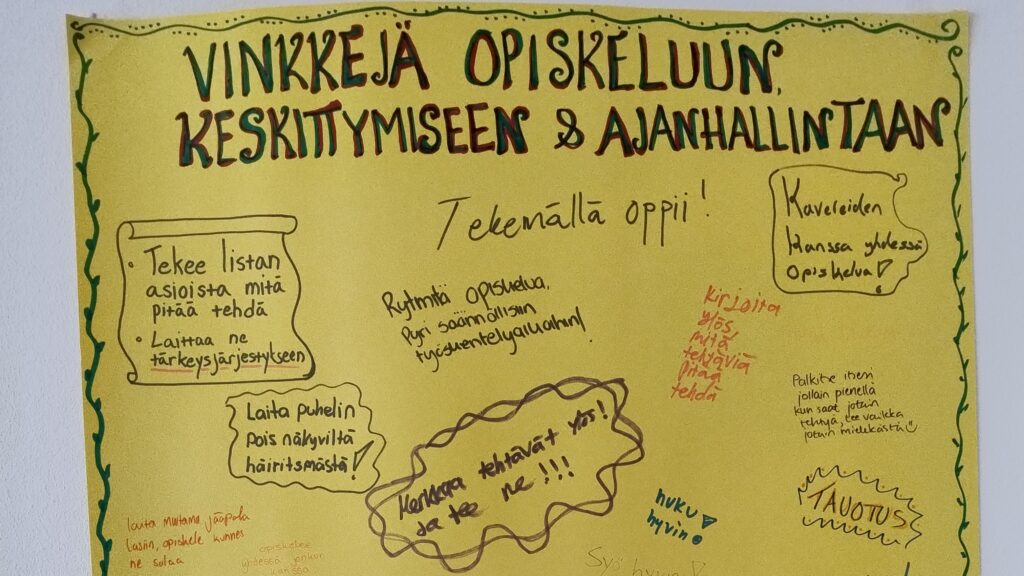 VINKKEJÄ OPISKELUUN,
KESKITTYMISEEN & AJANHALLINTAAN
Tekemällä oppii!
Kavereiden
kanssa yhdessä
opiskelua!
• Tekee listan
asioista mitä
pitää tehdä
• Laittaa ne
tärkeysjärjestykseen
Rytmitä opiskelua,
Pyri säännöllisiin
työskentelyaikoihin!
Kirjoita
ylös,
mitä
tehtäviä
pitää
tehdä
Palkitse itsesi
jollain pienellä
kun saat jotain
tehtyä, tee vaikka
jotain mielekästä
Laita puhelin
pois näkyviltä
häiritsemästä!
Kerkkaa tehtävät ylös!
Ja tee ne!!!
TAUOTUS
nuku
hyvin!
laita muutama jääpala
lasiin, opiskele kunnes
ne sulaa
opiskelee
yhdessä jonkun
kanssa
Syö hyvin!